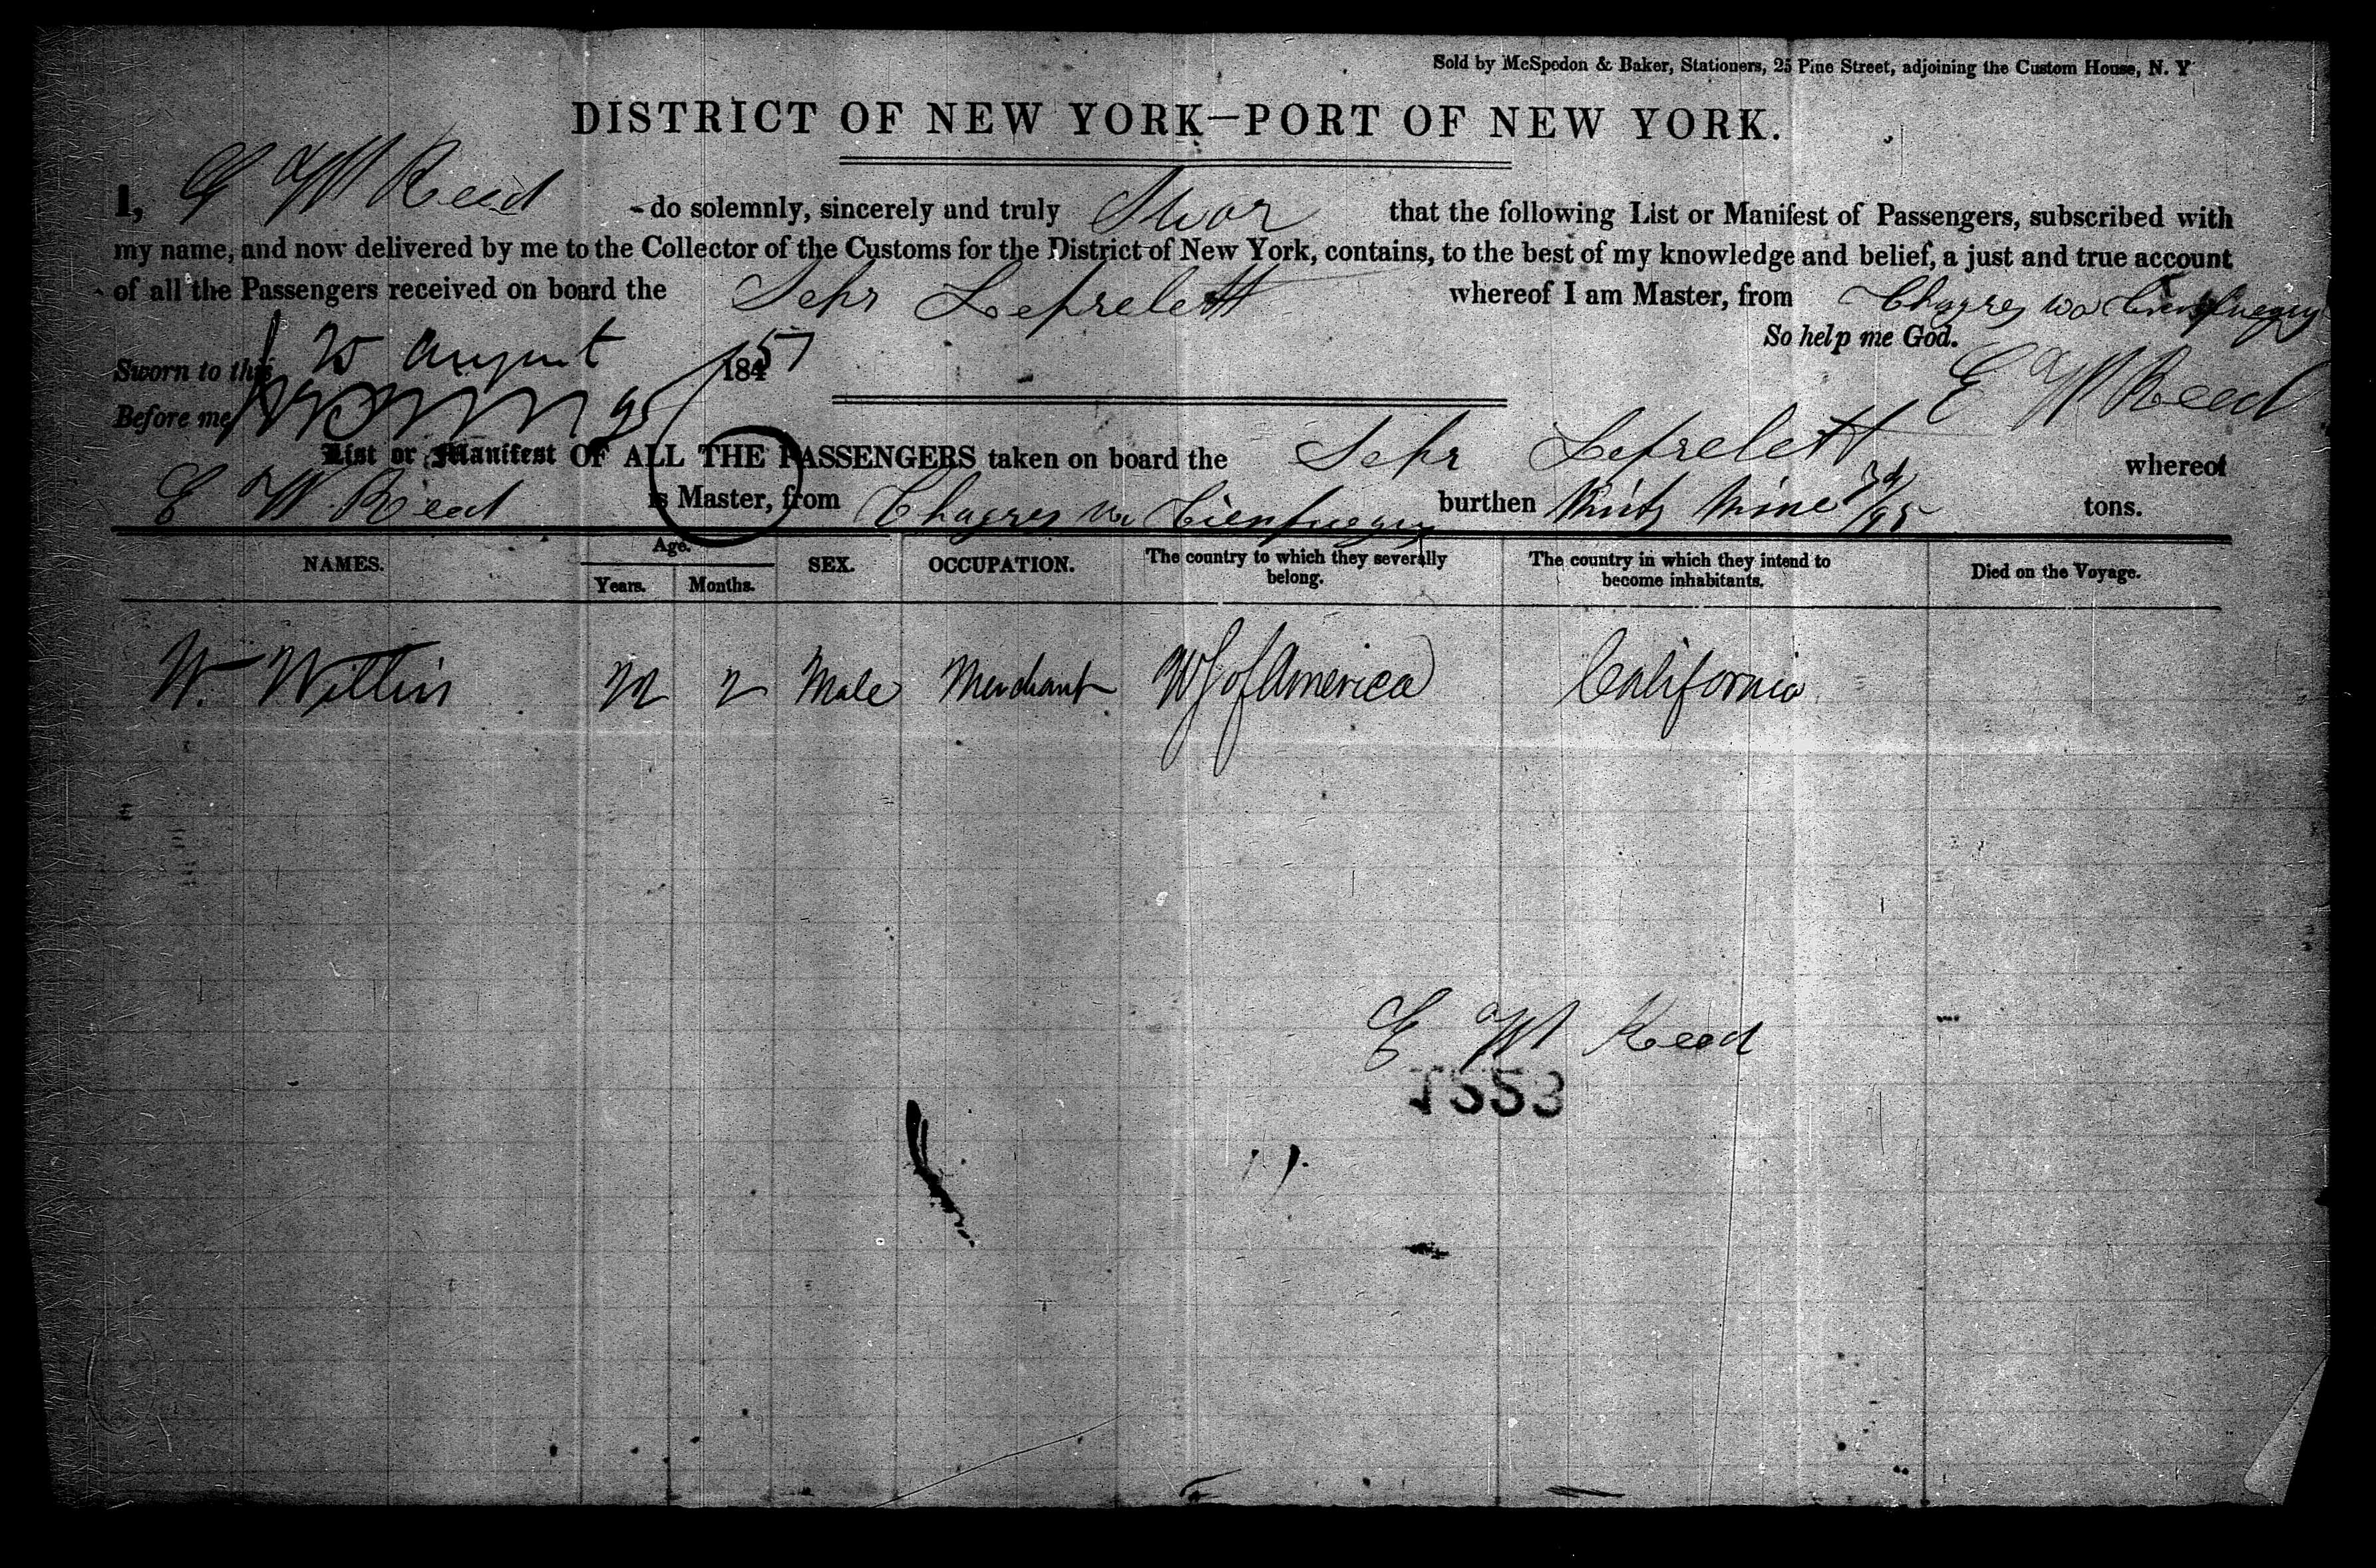 Sold by McSpedon & Baker, Stationers, 25 Pine Street, adjoining the Custom House, N. Y
DISTRICT OF NEW YORK—PORT OF NEW YORK.
I, E W Reed do solemnly, sincerely and truly Swar that the following List or Manifest of Passengers, subscribed with
my name, and now delivered by me to the Collector of the Customs for the District of New York, contains, to the best of my knowledge and belief, a just and true account
of all the Passengers received on board the Schr whereof I am Master, from Chagres via Cienfuegus
So help me God.
Sworn to this 25 August 1851
E W Reed
Before me
List or Manifest OF ALL THE PASSENGERS taken on board the Schr whereof
E W Reed is Master, from Chagres via Cienfuegus burthen Ninty Nine tons.
NAMES. Age. SEX. OCCUPATION. The country to which they severally belong. The country in which they intend to become inhabitants. Died on the Voyage.
Years. Months.
W. Male Merchant of America California
E W Reed
1553